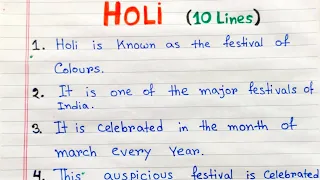 HOLI (10 Lines)
1. Holi is Known as the festival of
Colours.
2. It is one of the major festivals of
India.
3. It is celebrated in the month of
march every Year.
4. This auspicious festival is Celebrated